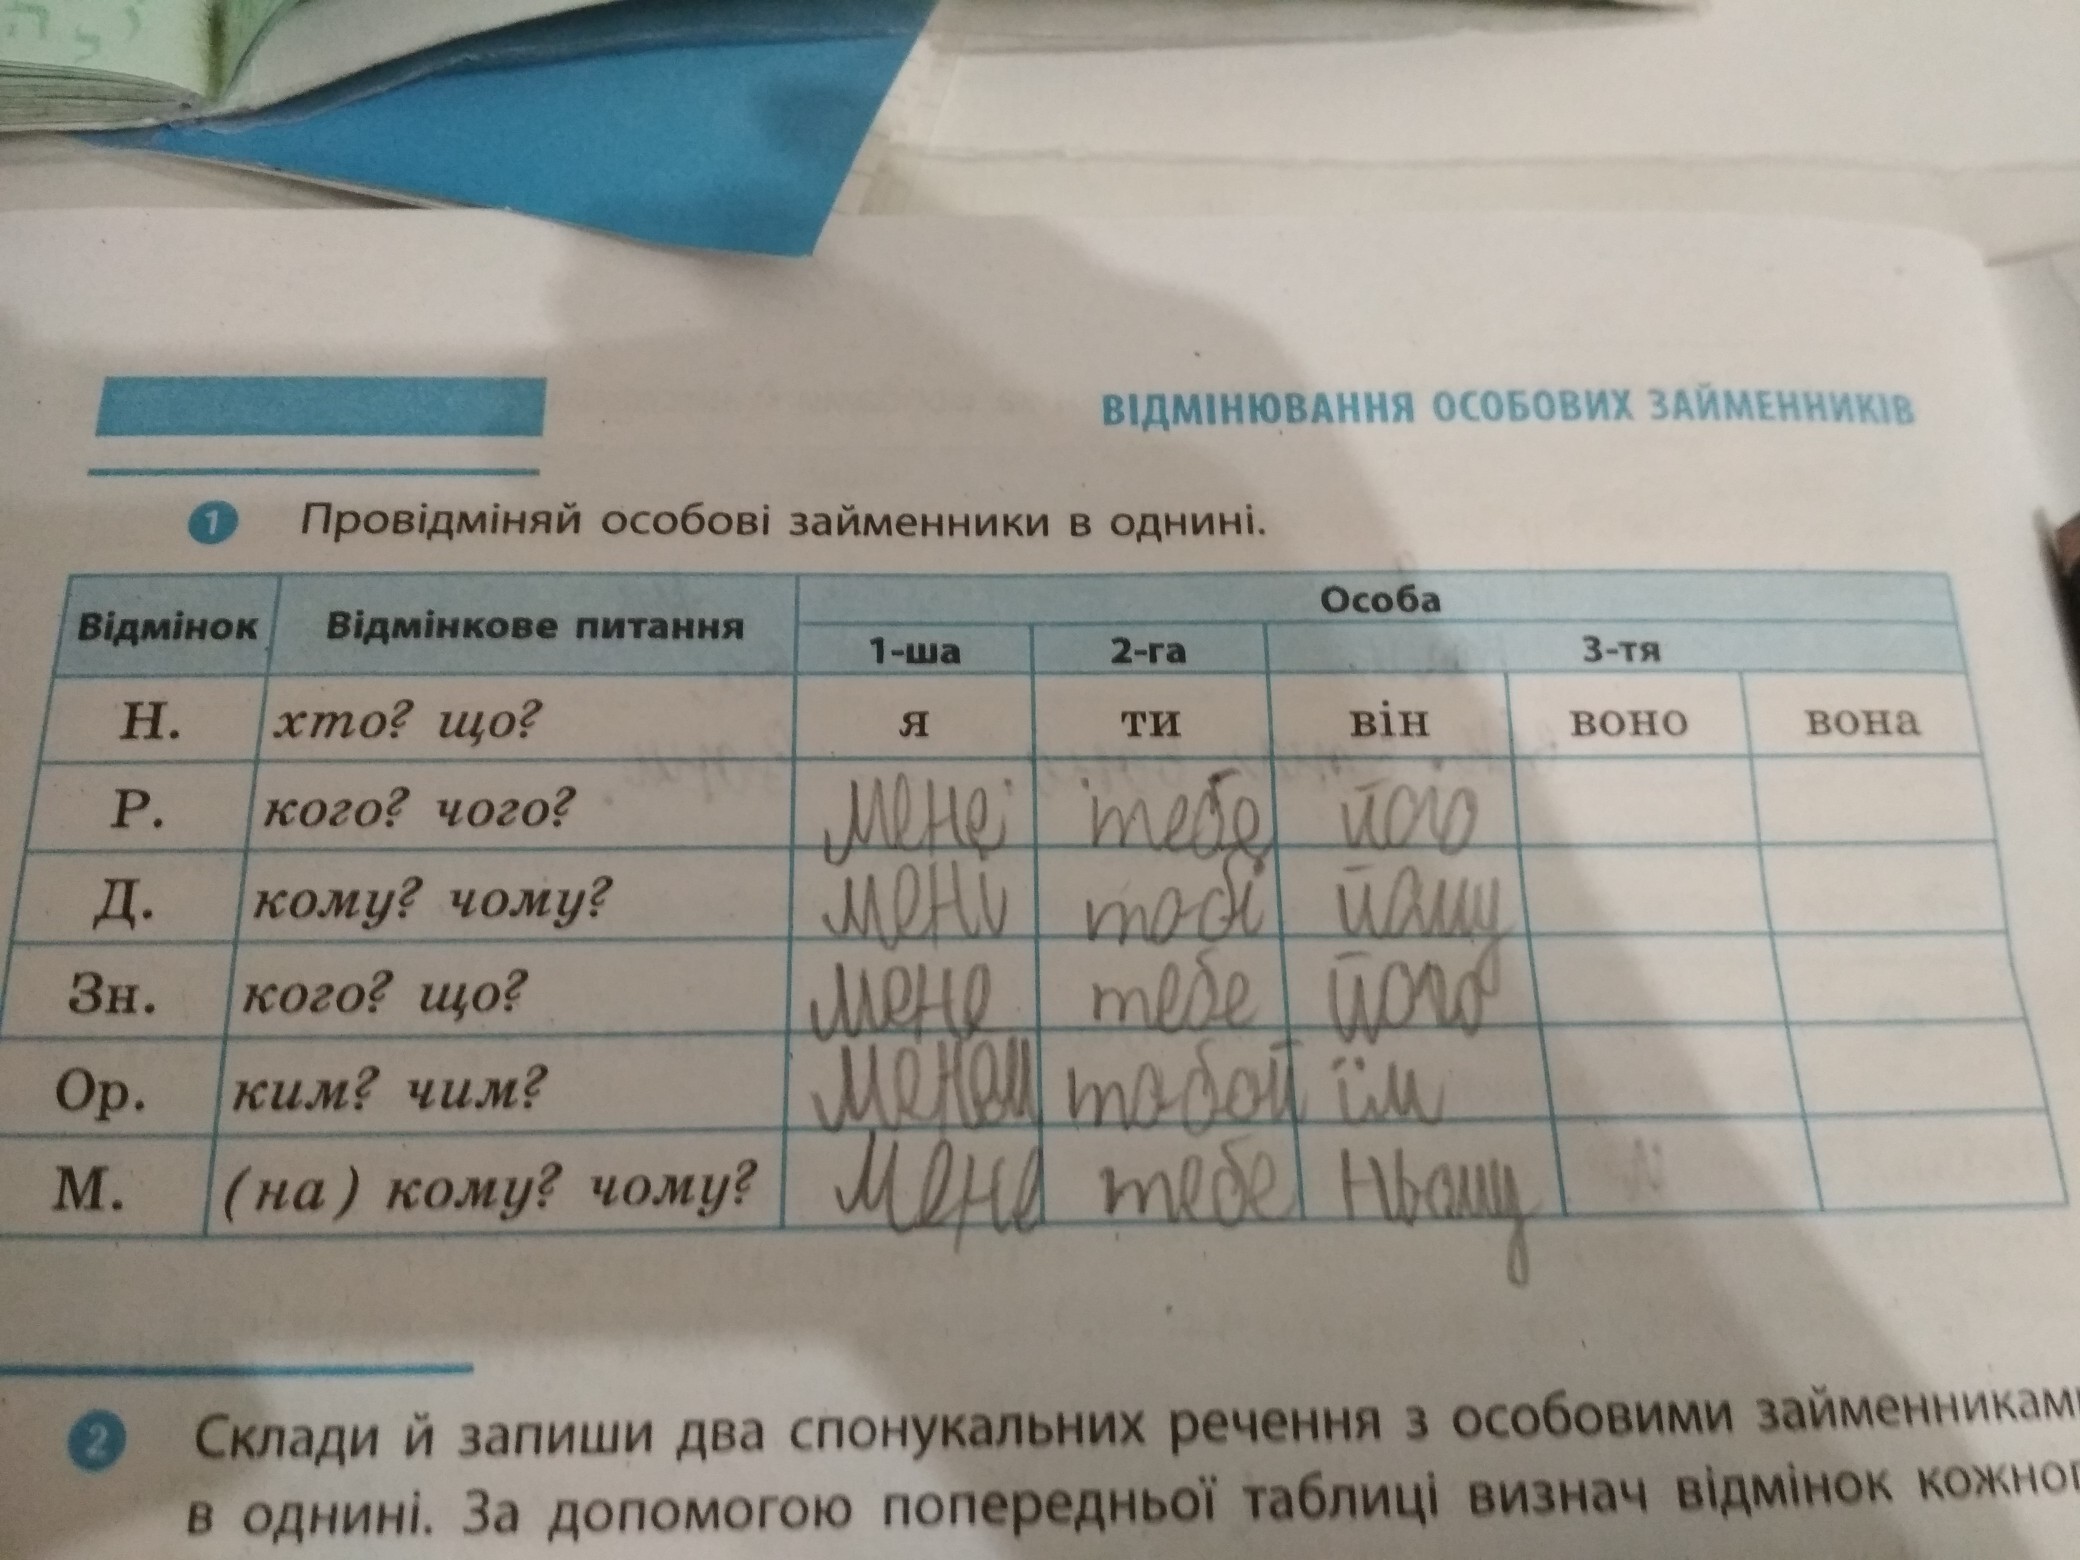 ВІДМІНЮВАННЯ ОСОБОВИХ ЗАЙМЕННИКІВ
1 Провідміняй особові займенники в однині.
Відмінок Відмінкове питання Особа
1-ша 2-га 3-тя
Н. хто? що? я ти він воно вона
Р. кого? чого? мене тебе його
Д. кому? чому? мені тобі йому
Зн. кого? що? мене тебе його
Ор. ким? чим? тобой їм
М. (на) кому? чому? мене тебе ньому
2 Склади й запиши два спонукальних речення з особовими займенниками
в однині. За допомогою попередньої таблиці визнач відмінок